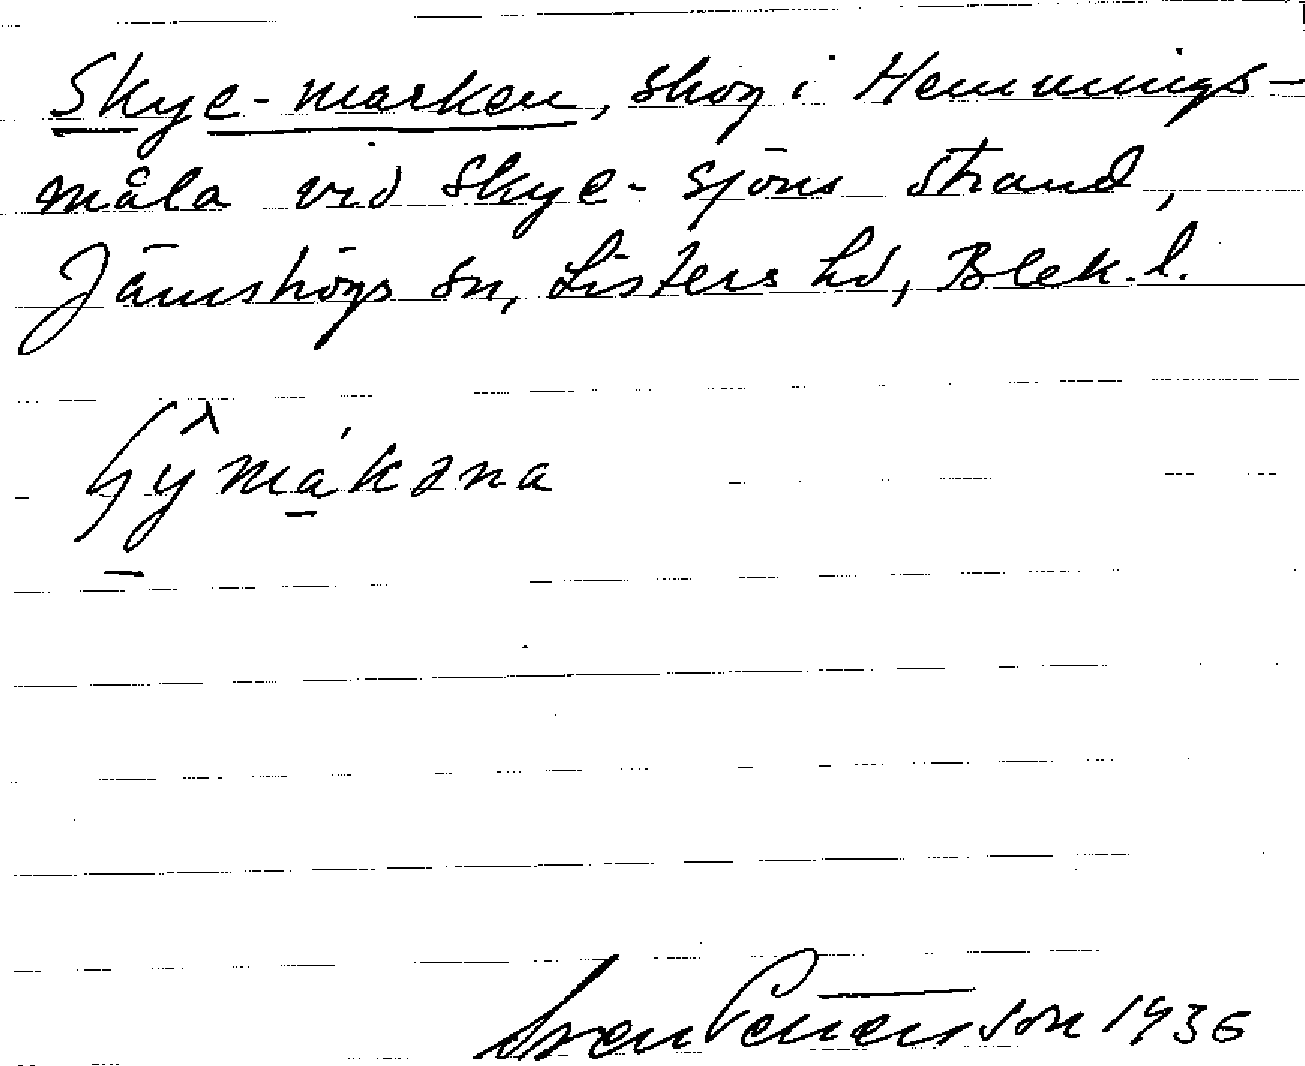 Skye-marken, skog i Hemmings-
måla vid Skye-sjöns strand,
Jämshögs sn, Listers hd, Blek. l.
Sven Benson 1936